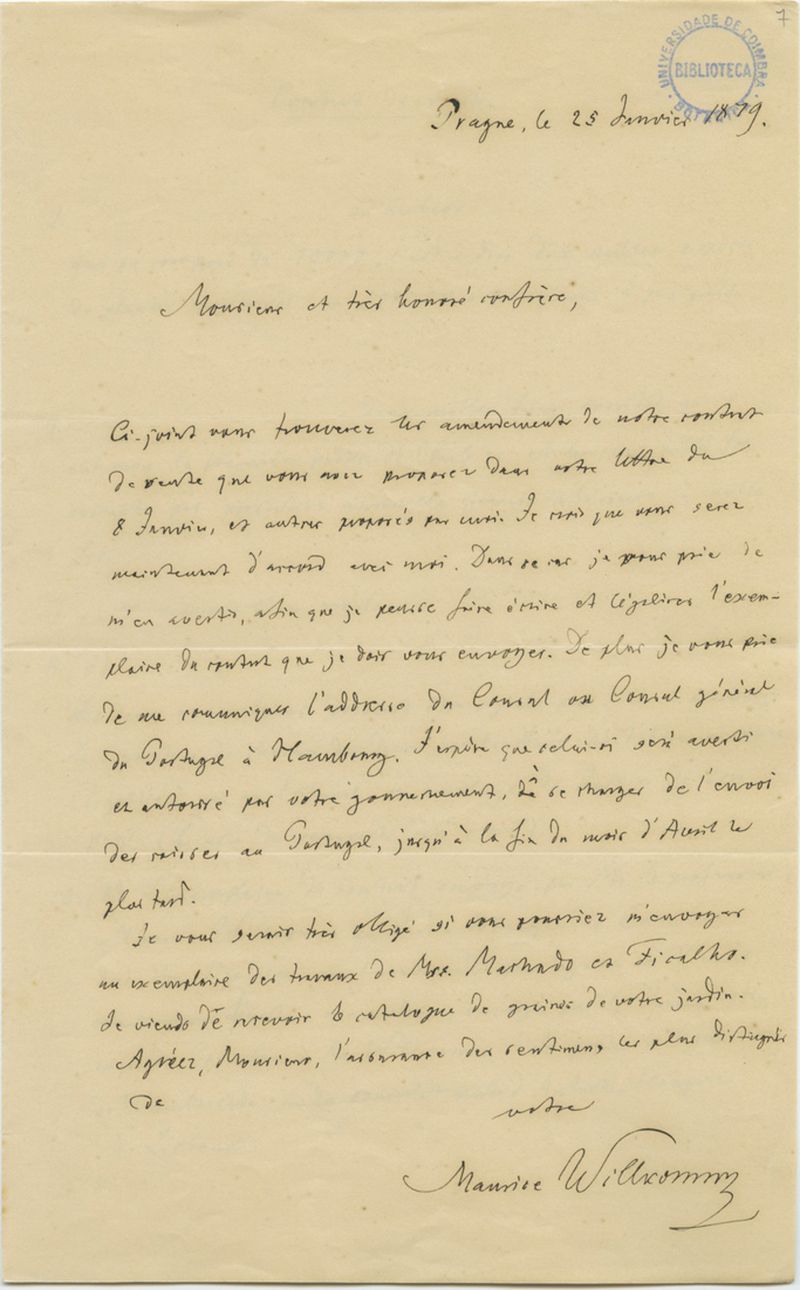 7
UNIVERSIDADE DE COIMBRA
BIBLIOTECA
Prague, le 25 Janvier 1879.
Monsieur et très honoré confrère,
Ci-joint vous trouverez les amendements de notre contrat
de vente que vous avez proposez dans votre lettre du
8 Janvier, et autres proposés par moi. Je crois que vous serez
maintenant d'accord avec moi. Dans ce cas je vous prie de
m'en avertir, afin que je puisse faire écrire et légaliser l'exem-
plaire du contrat que je dois vous envoyer. De plus je vous prie
de me communiquer l'addresse du Consul ou Consul général
du Portugal à Hambourg. J'espère que celui-ci sera averti
et autorisé par votre gouvernement, de se charger de l'envoi
des caisses au Portugal, jusqu'à la fin du mois d'Avril le
plus tard.
Je vous serais très obligé si vous pourriez m'envoyer
un exemplaire des travaux de Mrs. Machado et Ficalho.
Je viends de recevoir le catalogue de graines de votre jardin.
Agréez, Monsieur, l'assurance des sentimens les plus distingués
de
votre
Maurice Willkomm